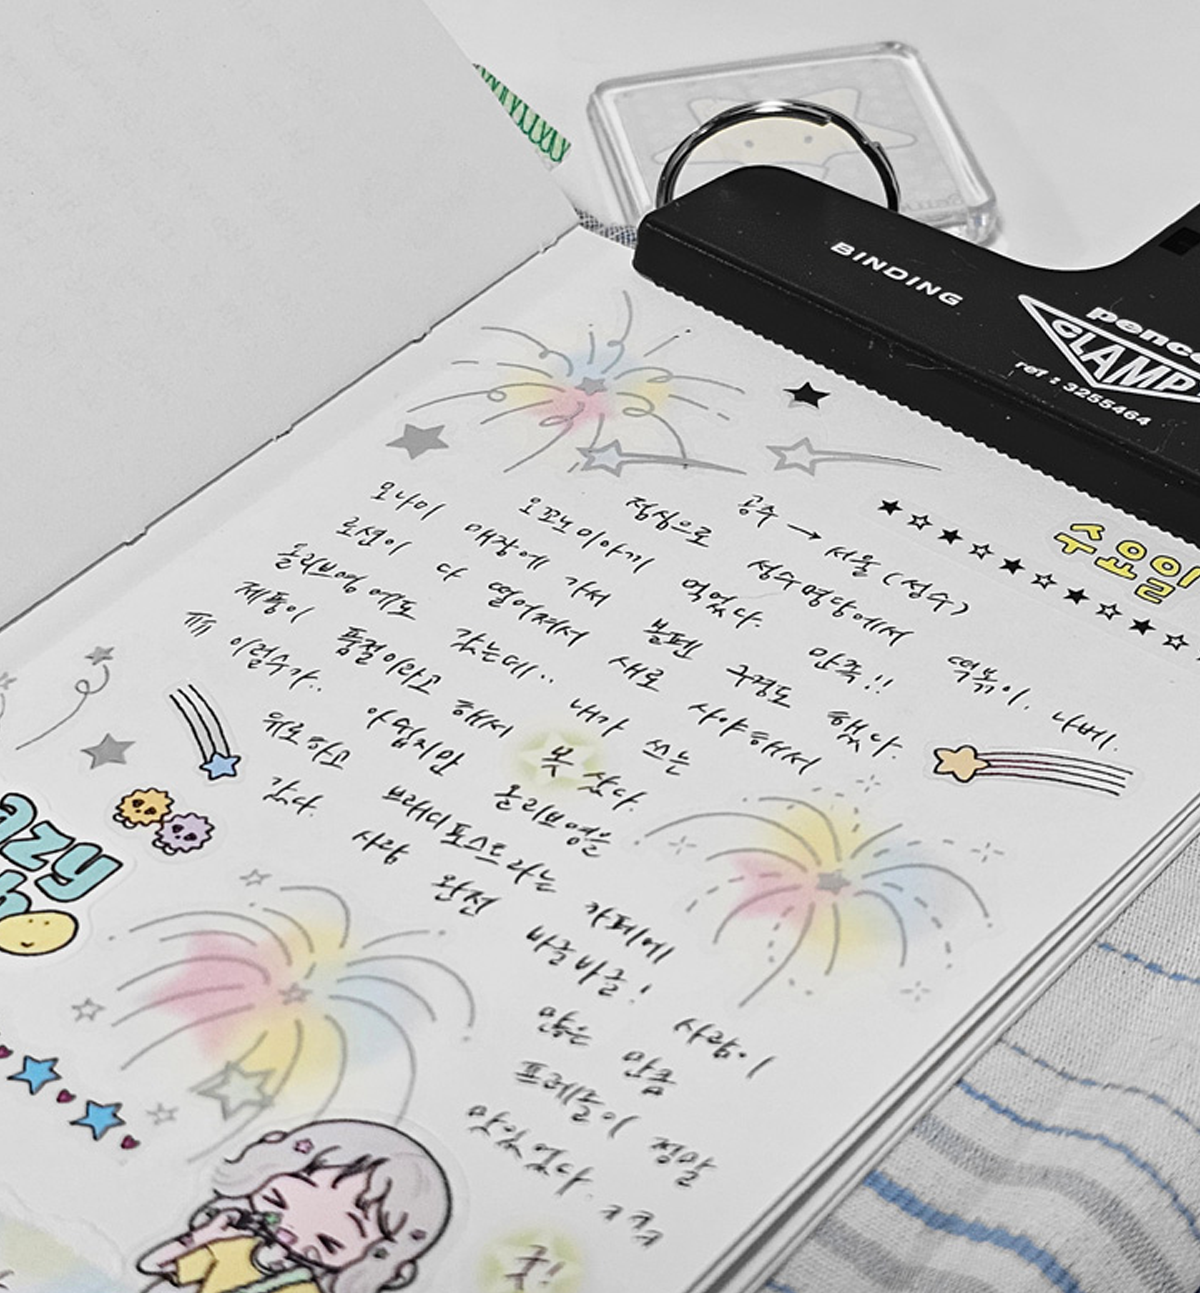 BINDING
penco
CLAMP
ref : 3255464
수요일
공주 → 서울 (성수)
점심으로 성수명당에서 떡볶이, 나베,
오꼬노미야끼 먹었다. 만족!!
모나미 매장에 가서 볼펜 구경도 했다.
로션이 다 떨어져서 새로 사야해서
올리브영에도 갔는데.. 내가 쓰는
제품이 품절이라고 해서 못 샀다.
ㅠㅠ 이럴수가.. 아쉽지만 올리브영을
뒤로하고 브래디포스트라는 카페에
갔다. 사람 완전 바글바글! 사람이
많은 만큼
프레즐이 정말
맛있었다. ㅋㅋㅋ
굿!
azy